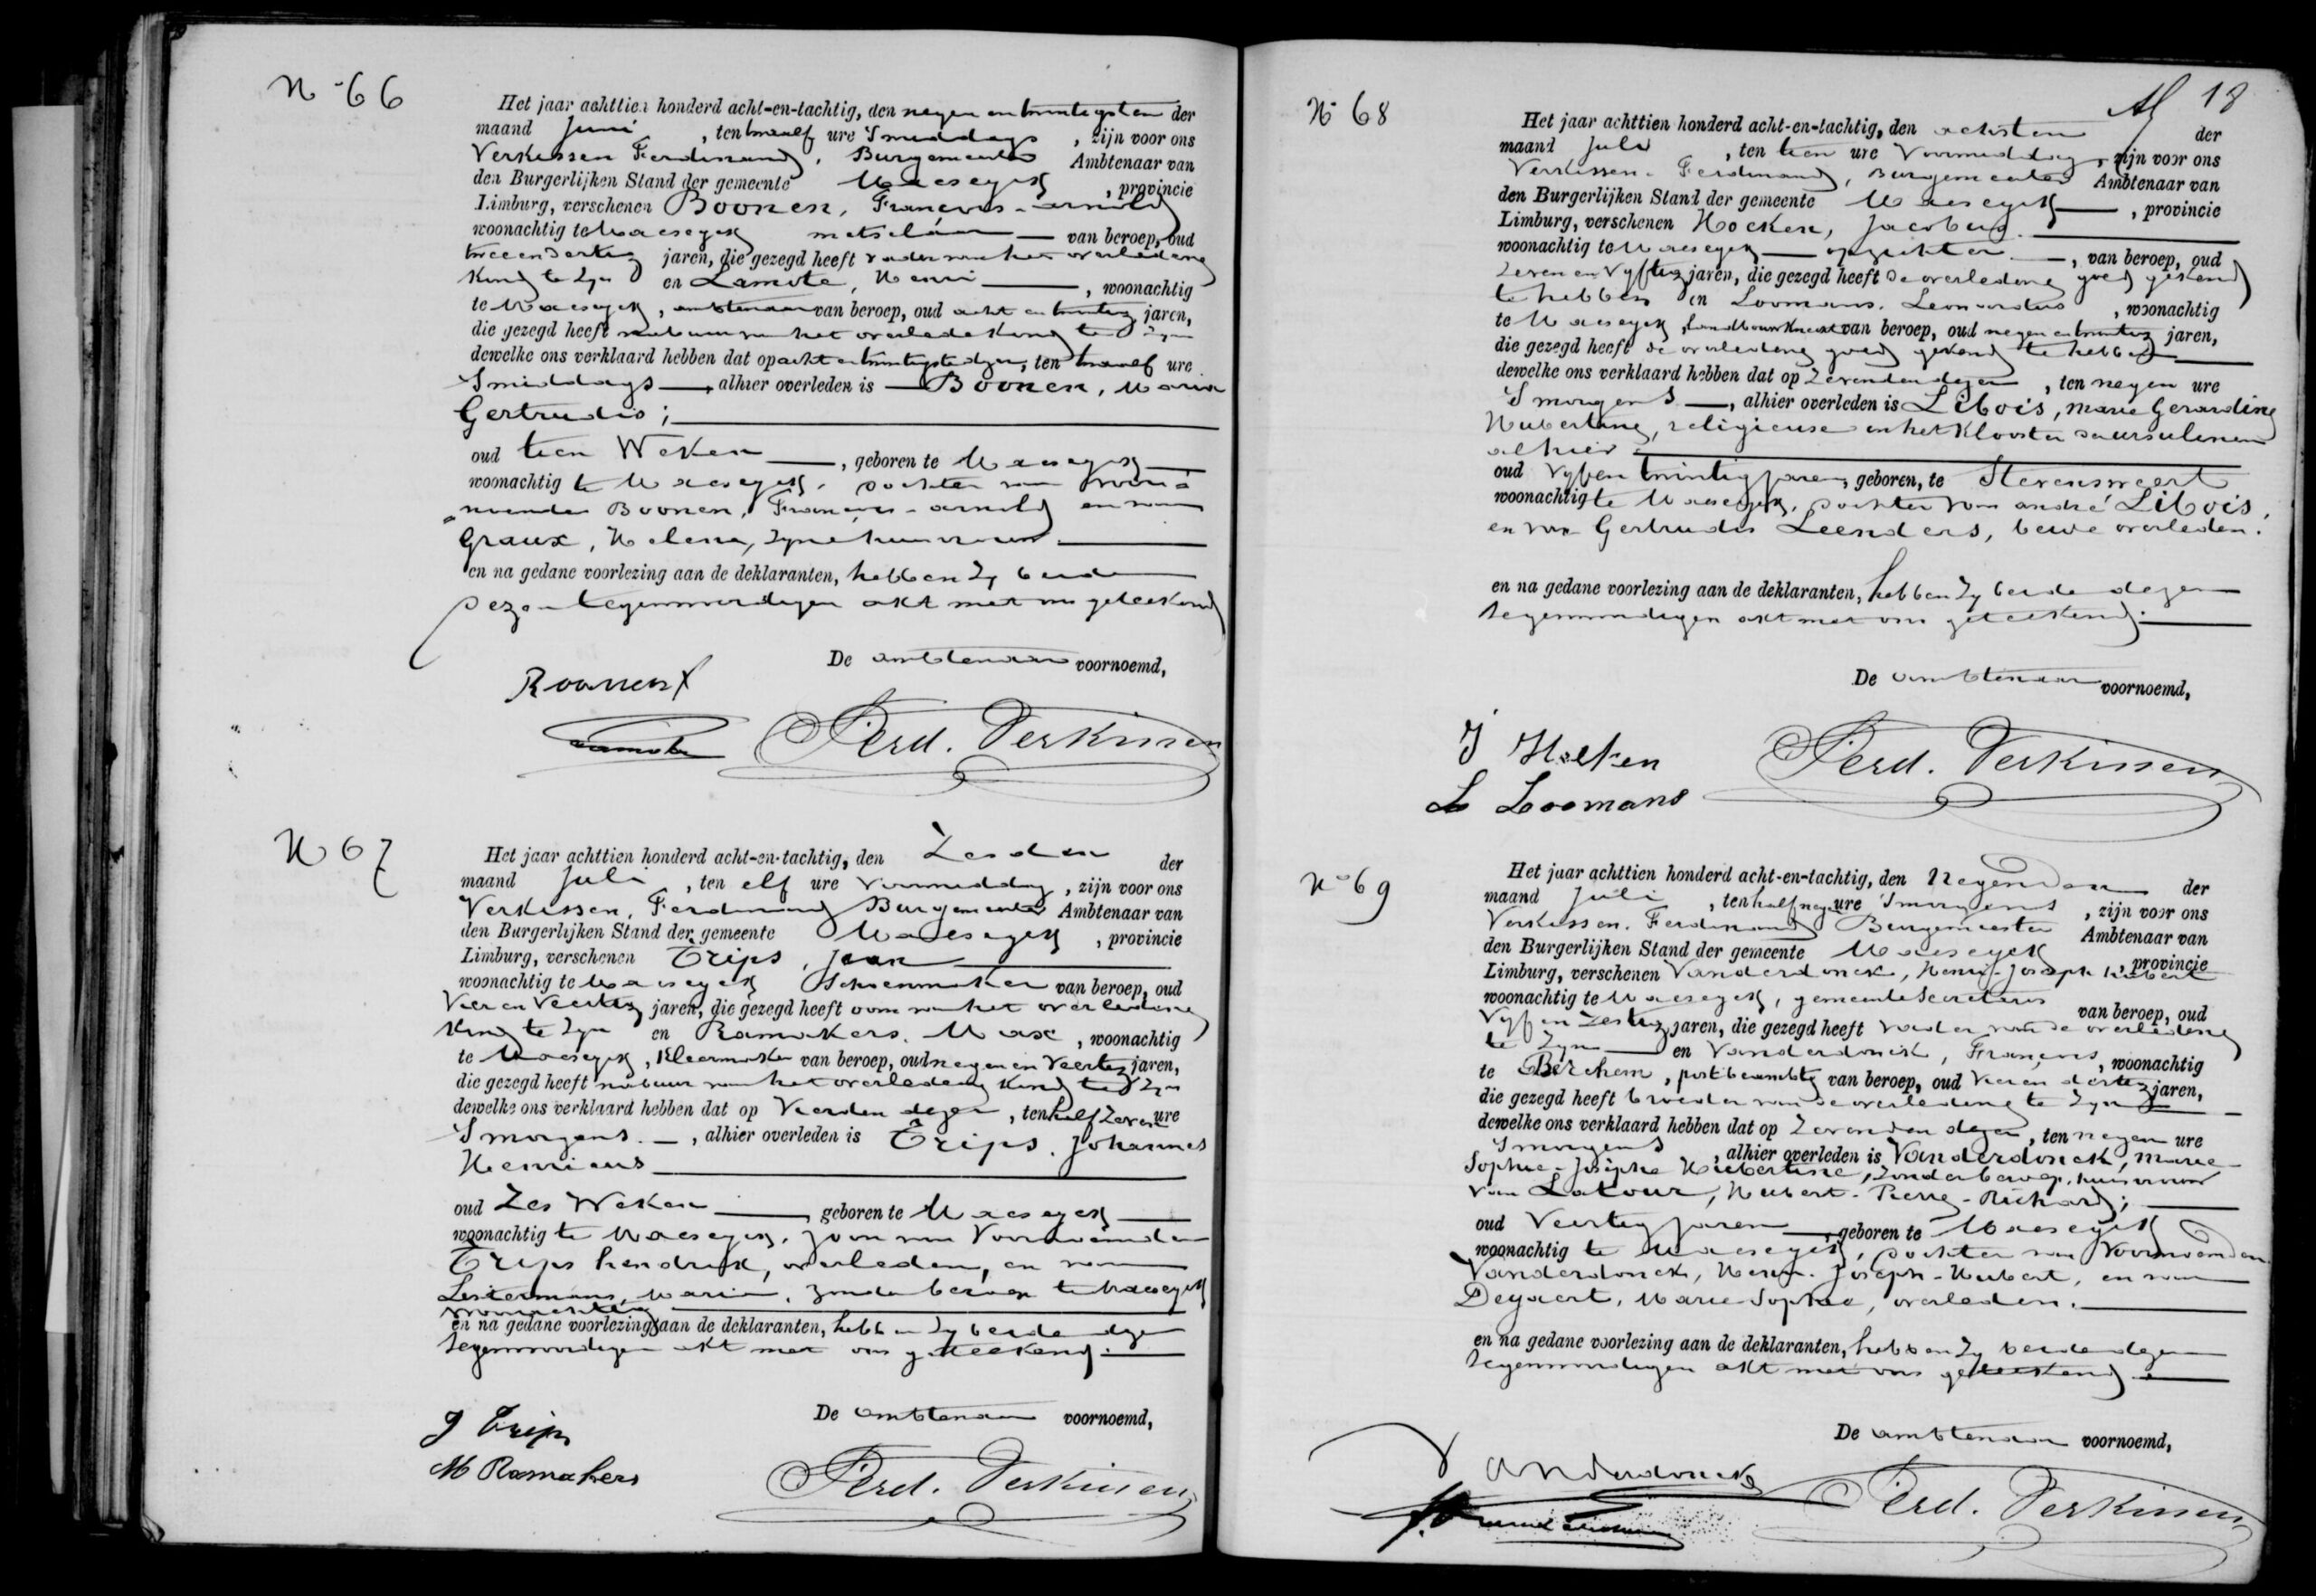 N° 66
Het jaar achttien honderd acht-en-tachtig, den negen en twintigsten der
maand Juni , ten twaalf ure Smiddags , zijn voor ons
Verkissen Ferdinand, Burgemeester Ambtenaar van
den Burgerlijken Stand der gemeente Maeseyck , provincie
Limburg, verschenen Boonen, François-arnold
woonachtig te Maeseyck metselaar van beroep, oud
twee en dertig jaren, die gezegd heeft vader van het overledene
Kind te zyn en Lamote, Henri , woonachtig
te Maeseyck, ambtenaar van beroep, oud acht en twintig jaren,
die gezegd heeft nabuur van het overledene Kind te zyn
dewelke ons verklaard hebben dat op acht en twintigste dezer, ten twaalf ure
Smiddags , alhier overleden is Boonen, Maria
Gertrudis;
oud tien Weken , geboren te Maeseyck
woonachtig te Maeseyck, dochter van voor-
noemden Boonen, François-arnold en van
Graux, Helena, zyne huisvrouw.
en na gedane voorlezing aan de deklaranten, hebben zy beide
dezen tegenwoordigen akt met ons geteekend
De ambtenaar voornoemd,
Boonen f
Lamote
Ferd. Verkissen
N 67
Het jaar achttien honderd acht-en-tachtig, den Zesden der
maand Juli , ten elf ure voormiddag , zijn voor ons
Verkissen, Ferdinand Burgemeester Ambtenaar van
den Burgerlijken Stand der gemeente Maeseyck , provincie
Limburg, verschenen Trips, Jean
woonachtig te Maeseyck Schoenmaker van beroep, oud
Vier en Veertig jaren, die gezegd heeft oom van het overledene
Kind te zyn en Ramakers, Max , woonachtig
te Maeseyck, Kleermaker van beroep, oud negen en Veertig jaren,
die gezegd heeft nabuur van het overledene Kind te zyn
dewelke ons verklaard hebben dat op Vierden dezer , ten half Zeven ure
Smorgens. , alhier overleden is Trips, Johannes
Henricus
oud Zes Weken , geboren te Maeseyck
woonachtig te Maeseyck, zoon van Voornoemden
Trips hendrik, overleden, en van
Lestermans, Maria, zonder beroep te Maeseyck
woonachtig
en na gedane voorlezing aan de deklaranten, hebben zy beide dezen
tegenwoordigen akt met ons geteekend.
De ambtenaar voornoemd,
J Trips
M Ramakers
Ferd. Verkissen
18
N° 68
Het jaar achttien honderd acht-en-tachtig, den achsten der
maand Juli , ten tien ure Voormiddag , zijn voor ons
Verkissen. Ferdinand, Burgemeester Ambtenaar van
den Burgerlijken Stand der gemeente Maeseyck , provincie
Limburg, verschenen Hocken, Jacobus.
woonachtig te Maeseyck opzichter , van beroep, oud
Zeven en Vyftig jaren, die gezegd heeft de overledene goed gekend
te hebben en Loomans. Leonardus , woonachtig
te Maeseyck, landbouwknecht van beroep, oud negen en twintig jaren,
die gezegd heeft de overledene goed gekend te hebben
dewelke ons verklaard hebben dat op Zevenden dezer , ten negen ure
Smorgens , alhier overleden is Libois, Marie Gerardine
Hubertine, religieuse in het Klooster der ursulinen
alhier.
oud Vyf en twintig jaren, geboren, te Stevensweert
woonachtig te Maeseyck, dochter van andré Libois,
en van Gertrudis Leenders, beide overleden.
en na gedane voorlezing aan de deklaranten, hebben zy beide dezen
tegenwoordigen akt met ons geteekend.
De ambtenaar voornoemd,
J Hocken
L Loomans
Ferd. Verkissen
N° 69
Het jaar achttien honderd acht-en-tachtig, den Negenden der
maand Juli , ten half negen ure Smorgens , zijn voor ons
Verkissen. Ferdinand Burgemeester Ambtenaar van
den Burgerlijken Stand der gemeente Maeseyck , provincie
Limburg, verschenen Vanderdonck, Henri-Joseph hubert
woonachtig te Maeseyck, gemeente Secretaris van beroep, oud
Vyf en Zestig jaren, die gezegd heeft vader van de overledene
te zyn en Vanderdonck, François , woonachtig
te Berchem, postbeambte van beroep, oud Vier en dertig jaren,
die gezegd heeft broeder van de overledene te zyn
dewelke ons verklaard hebben dat op Zevenden dezer , ten negen ure
Smorgens , alhier overleden is Vanderdonck, Marie-
Sophie-Josephe Hubertine, zonder beroep, huisvrouw
van Latour, Hubert-Pierre-Richard;
oud Veertig jaren , geboren te Maeseyck
woonachtig te Maeseyck, dochter van Voornoemden
Vanderdonck, Henri-Joseph-Hubert, en van
Deyaert, Marie Sophie, overleden.
en na gedane voorlezing aan de deklaranten, hebben zy beide dezen
tegenwoordigen akt met ons geteekend.
De ambtenaar voornoemd,
Vanderdonck
Ferd. Verkissen